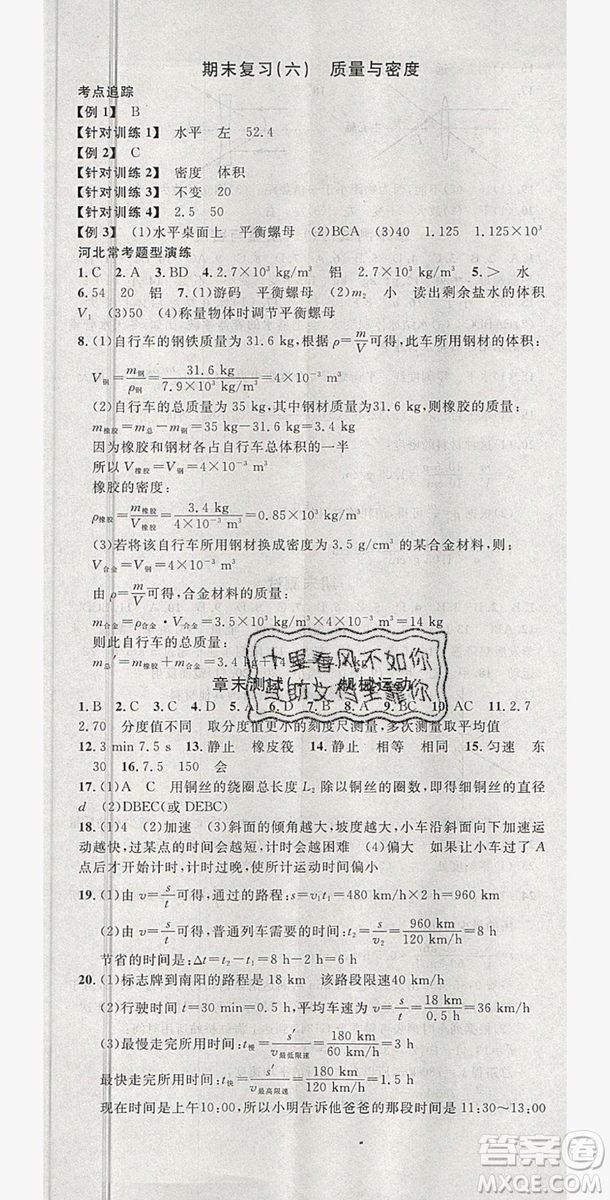 期末复习(六) 质量与密度
考点追踪
【例 1】 B
【针对训练 1】 水平 左 52.4
【例 2】 C
【针对训练 2】 密度 体积
【针对训练 3】 不变 20
【针对训练 4】 2.5 50
【例 3】 (1)水平桌面上 平衡螺母 (2)BCA (3)40 1.125 1.125×10³
河北常考题型演练
1. C 2. A 3. BD 4. 2.7×10³ kg/m³ 铝 2.7×10³ kg/m³ 5. > 水
6. 54 20 铝 7. (1)游码 平衡螺母 (2)m₂ 小 读出剩余盐水的体积
V₁ (3)50 (4)称量物体时调节平衡螺母
8. (1)自行车的钢铁质量为 31.6 kg,根据 ρ=m/V 可得,此车所用钢材体积:
V钢=m钢/ρ钢=31.6 kg/7.9×10³ kg/m³=4×10⁻³ m³
(2)自行车的总质量为 35 kg,其中钢材质量为31.6 kg,则橡胶的质量:
m橡胶=m-m钢=35 kg-31.6 kg=3.4 kg
因为橡胶和钢材各占自行车总体积的一半
所以 V橡胶=V钢=4×10⁻³ m³
橡胶的密度:
ρ橡胶=m橡胶/V橡胶=3.4 kg/4×10⁻³ m³=0.85×10³ kg/m³
(3)若将该自行车所用钢材换为密度为 3.5 g/cm³ 的某合金材料,
V合金=V钢=4×10⁻³ m³
由 ρ=m/V 可得,合金材料的质量:
m合金=ρ合金·V合金=3.5×10³ kg/m³×4×10⁻³ m³=14 kg
则此自行车的总质量:
m总=m橡胶+m合金=3.4 kg+14 kg
章末测试(一) 机械运动
十里春风不如你
互助文档全靠你
1. B 2. C 3. C 4. D 5. C 6. A 7. C 8. B 9. C 10. AC 11. 2.7
2.70 分度值不同 取分度值更小的刻度尺测量,多次测量取平均值
12. 3 min 7.5 s 13. 静止 橡皮筏 14. 静止 相等 相同 15. 匀速 东
30 16. 7.5 150 会
17. (1)A C 用铜丝的绕圈总长度 L₂ 除以铜丝的圈数,即得细铜丝的直径
d (2)DBEC(或 DEBC)
18. (1)4 (2)加速 (3)斜面的倾角越大,坡度越大,小车沿斜面向下运
动越快!过某点的时间会越短,计时会越困难 (4)偏大 如果让小车过了 A
点后才开始计时,计时过晚,使计运动时间偏小
19. (1)由 v=s/t 可得,通过的路程:s=v₁t₁=480 km/h×2 h=960 km
(2)由 v=s/t 可得,普通列车需要时间:t₂=s/v₂=960 km/120 km/h=8 h
节省的时间是:Δt=t₂-t₁=8 h-2 h=6 h
20. (1)标志牌到南阳的路程是 18 km 该路段限速40 km/h
(2)行驶时间 t=30 min=0.5 h,平均车速为:v=s/t=18 km/0.5 h=36 km/h
(3)最慢走完所用时间:t慢=s′/v最低限速=180 km/60 km/h=3 h
最快走完所用时间:t快=s′/v最高限速=180 km/120 km/h=1.5 h
现在时间是上午10:00,所以小明告诉他爸爸的那段时间是 11:30～13:00
作业精灵